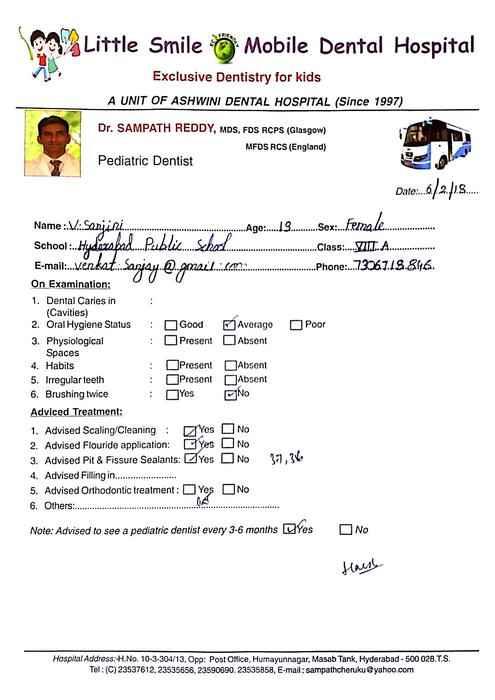 Little Smile Mobile Dental Hospital
Exclusive Dentistry for kids
A UNIT OF ASHWINI DENTAL HOSPITAL (Since 1997)
Dr. SAMPATH REDDY, MDS, FDS RCPS (Glasgow)
MFDS RCS (England)
Pediatric Dentist
Date: 6/2/18
Name: V. Sanjini Age: 13 Sex: Female
School: Hyderabad Public School Class: VIII A
E-mail: venkat sanjay @ gmail.com Phone: 7306718846
On Examination:
1. Dental Caries in :
(Cavities)
2. Oral Hygiene Status : Good Average Poor
3. Physiological : Present Absent
Spaces
4. Habits : Present Absent
5. Irregular teeth : Present Absent
6. Brushing twice : Yes No
Adviced Treatment:
1. Advised Scaling/Cleaning : Yes No
2. Advised Flouride application: Yes No
3. Advised Pit & Fissure Sealants: Yes No 37, 36
4. Advised Filling in
5. Advised Orthodontic treatment : Yes No
6. Others:
Note: Advised to see a pediatric dentist every 3-6 months Yes No
Hospital Address:-H.No. 10-3-304/13, Opp: Post Office, Humayunnagar, Masab Tank, Hyderabad - 500 028.T.S.
Tel : (C) 23537612, 23535656, 23590690. 23535858, E-mail : sampathcheruku@yahoo.com